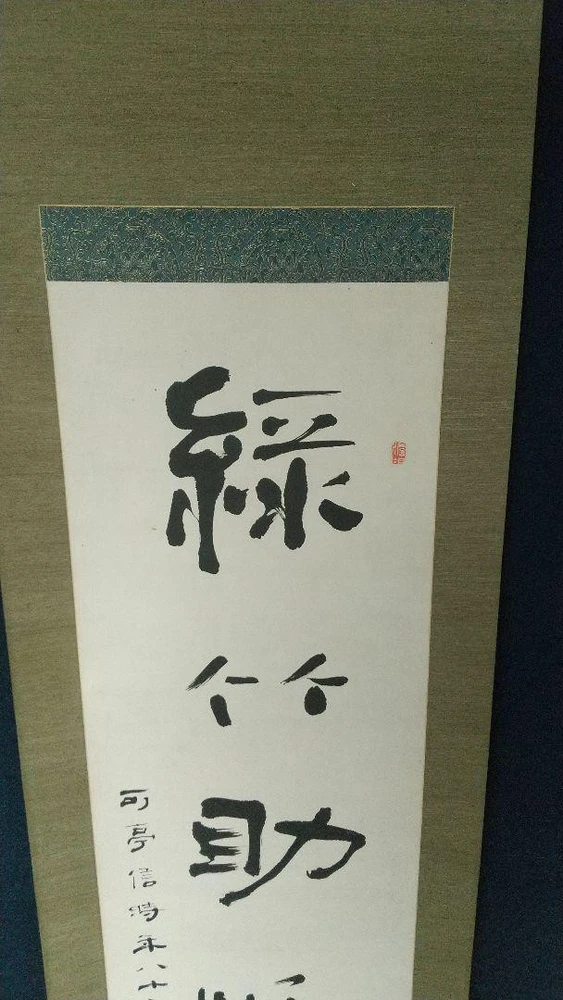 綠竹助
可亭信時年八十